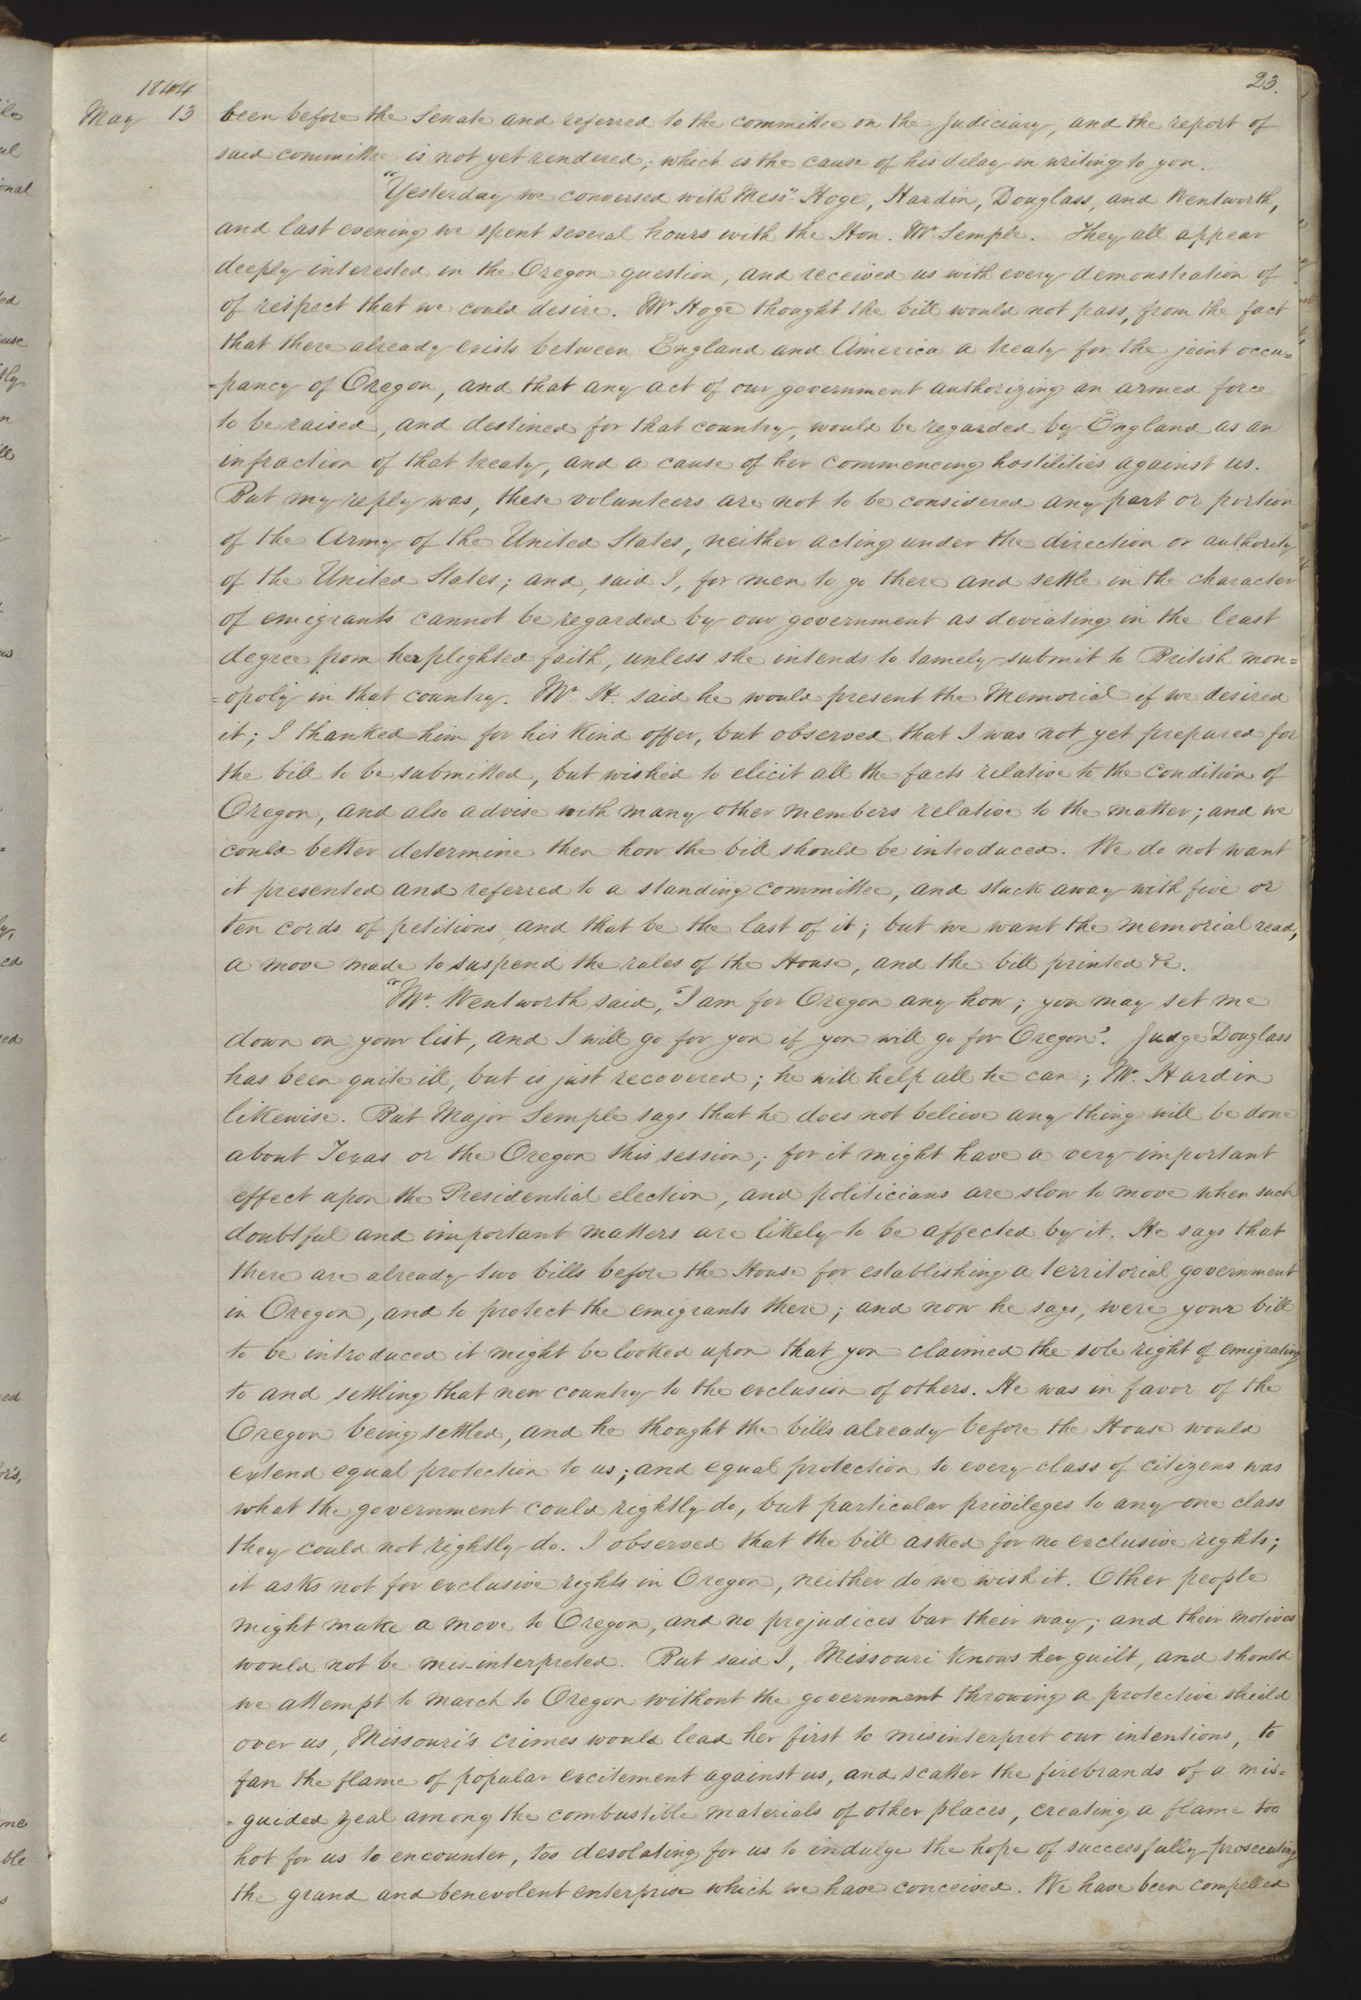 23.
1844
May 13 been before the Senate and referred to the committee on the Judiciary, and the report of
said committee is not yet rendered; which is the cause of his delay in writing to you.
"Yesterday we conversed with Mess.rs Hoge, Hardin, Douglass, and Wentworth,
and last evening we spent several hours with the Hon. Mr. Semple. They all appear
deeply interested in the Oregon question, and received us with every demonstration of
of respect that we could desire. Mr Hoge thought the bill would not pass, from the fact
that there already exists between England and America a treaty for the joint occu=
=pancy of Oregon, and that any act of our government authorizing an armed force
to be raised, and destined for that country, would be regarded by England as an
infraction of that treaty, and a cause of her commencing hostilities against us.
But my reply was, these volunteers are not to be considered any part or portion
of the Army of the United States, neither acting under the direction or authority
of the United States; and, said I, for men to go there and settle in the character
of emigrants cannot be regarded by our government as deviating in the least
degree from her plighted faith, unless she intends to tamely submit to British mon=
=opoly in that country. Mr. H. said he would present the Memorial if we desired
it; I thanked him for his kind offer, but observed that I was not yet prepared for
the bill to be submitted, but wished to elicit all the facts relative to the condition of
Oregon, and also advise with many other members relative to the matter; and we
could better determine then how the bill should be introduced. We do not want
it presented and referred to a standing committee, and stuck away with five or
ten cords of petitions, and that be the last of it; but we want the memorial read,
a move made to suspend the rules of the House, and the bill printed &c.
"Mr. Wentworth said, 'I am for Oregon any how; you may set me
down on your list, and I will go for you if you will go for Oregon'. Judge Douglass
has been quite ill, but is just recovered; he will help all he can; Mr. Hardin
likewise. But Major Semple says that he does not believe any thing will be done
about Texas or the Oregon this session; for it might have a very important
effect upon the Presidential election, and politicians are slow to move when such
doubtful and important matters are likely to be affected by it. He says that
there are already two bills before the House for establishing a territorial government
in Oregon, and to protect the emigrants there; and now he says, were your bill
to be introduced it might be looked upon that you claimed the sole right of emigrating
to and settling that new country to the exclusion of others. He was in favor of the
Oregon being settled, and he thought the bills already before the House would
extend equal protection to us; and equal protection to every class of citizens was
what the government could rightly do, but particular privileges to any one class
they could not rightly do. I observed that the bill asked for no exclusive rights;
it asks not for exclusive rights in Oregon, neither do we wish it. Other people
might make a move to Oregon, and no prejudices bar their way; and their motives
would not be mis-interpreted. But said I, Missouri knows her guilt, and should
we attempt to march to Oregon without the government throwing a protective shield
over us, Missouri's crimes would lead her first to misinterpret our intentions, to
fan the flame of popular excitement against us, and scatter the firebrands of a mis=
=guided zeal among the combustible materials of other places, creating a flame too
hot for us to encounter, too desolating for us to indulge the hope of successfully prosecuting
the grand and benevolent enterprise which we have conceived. We have been compelled